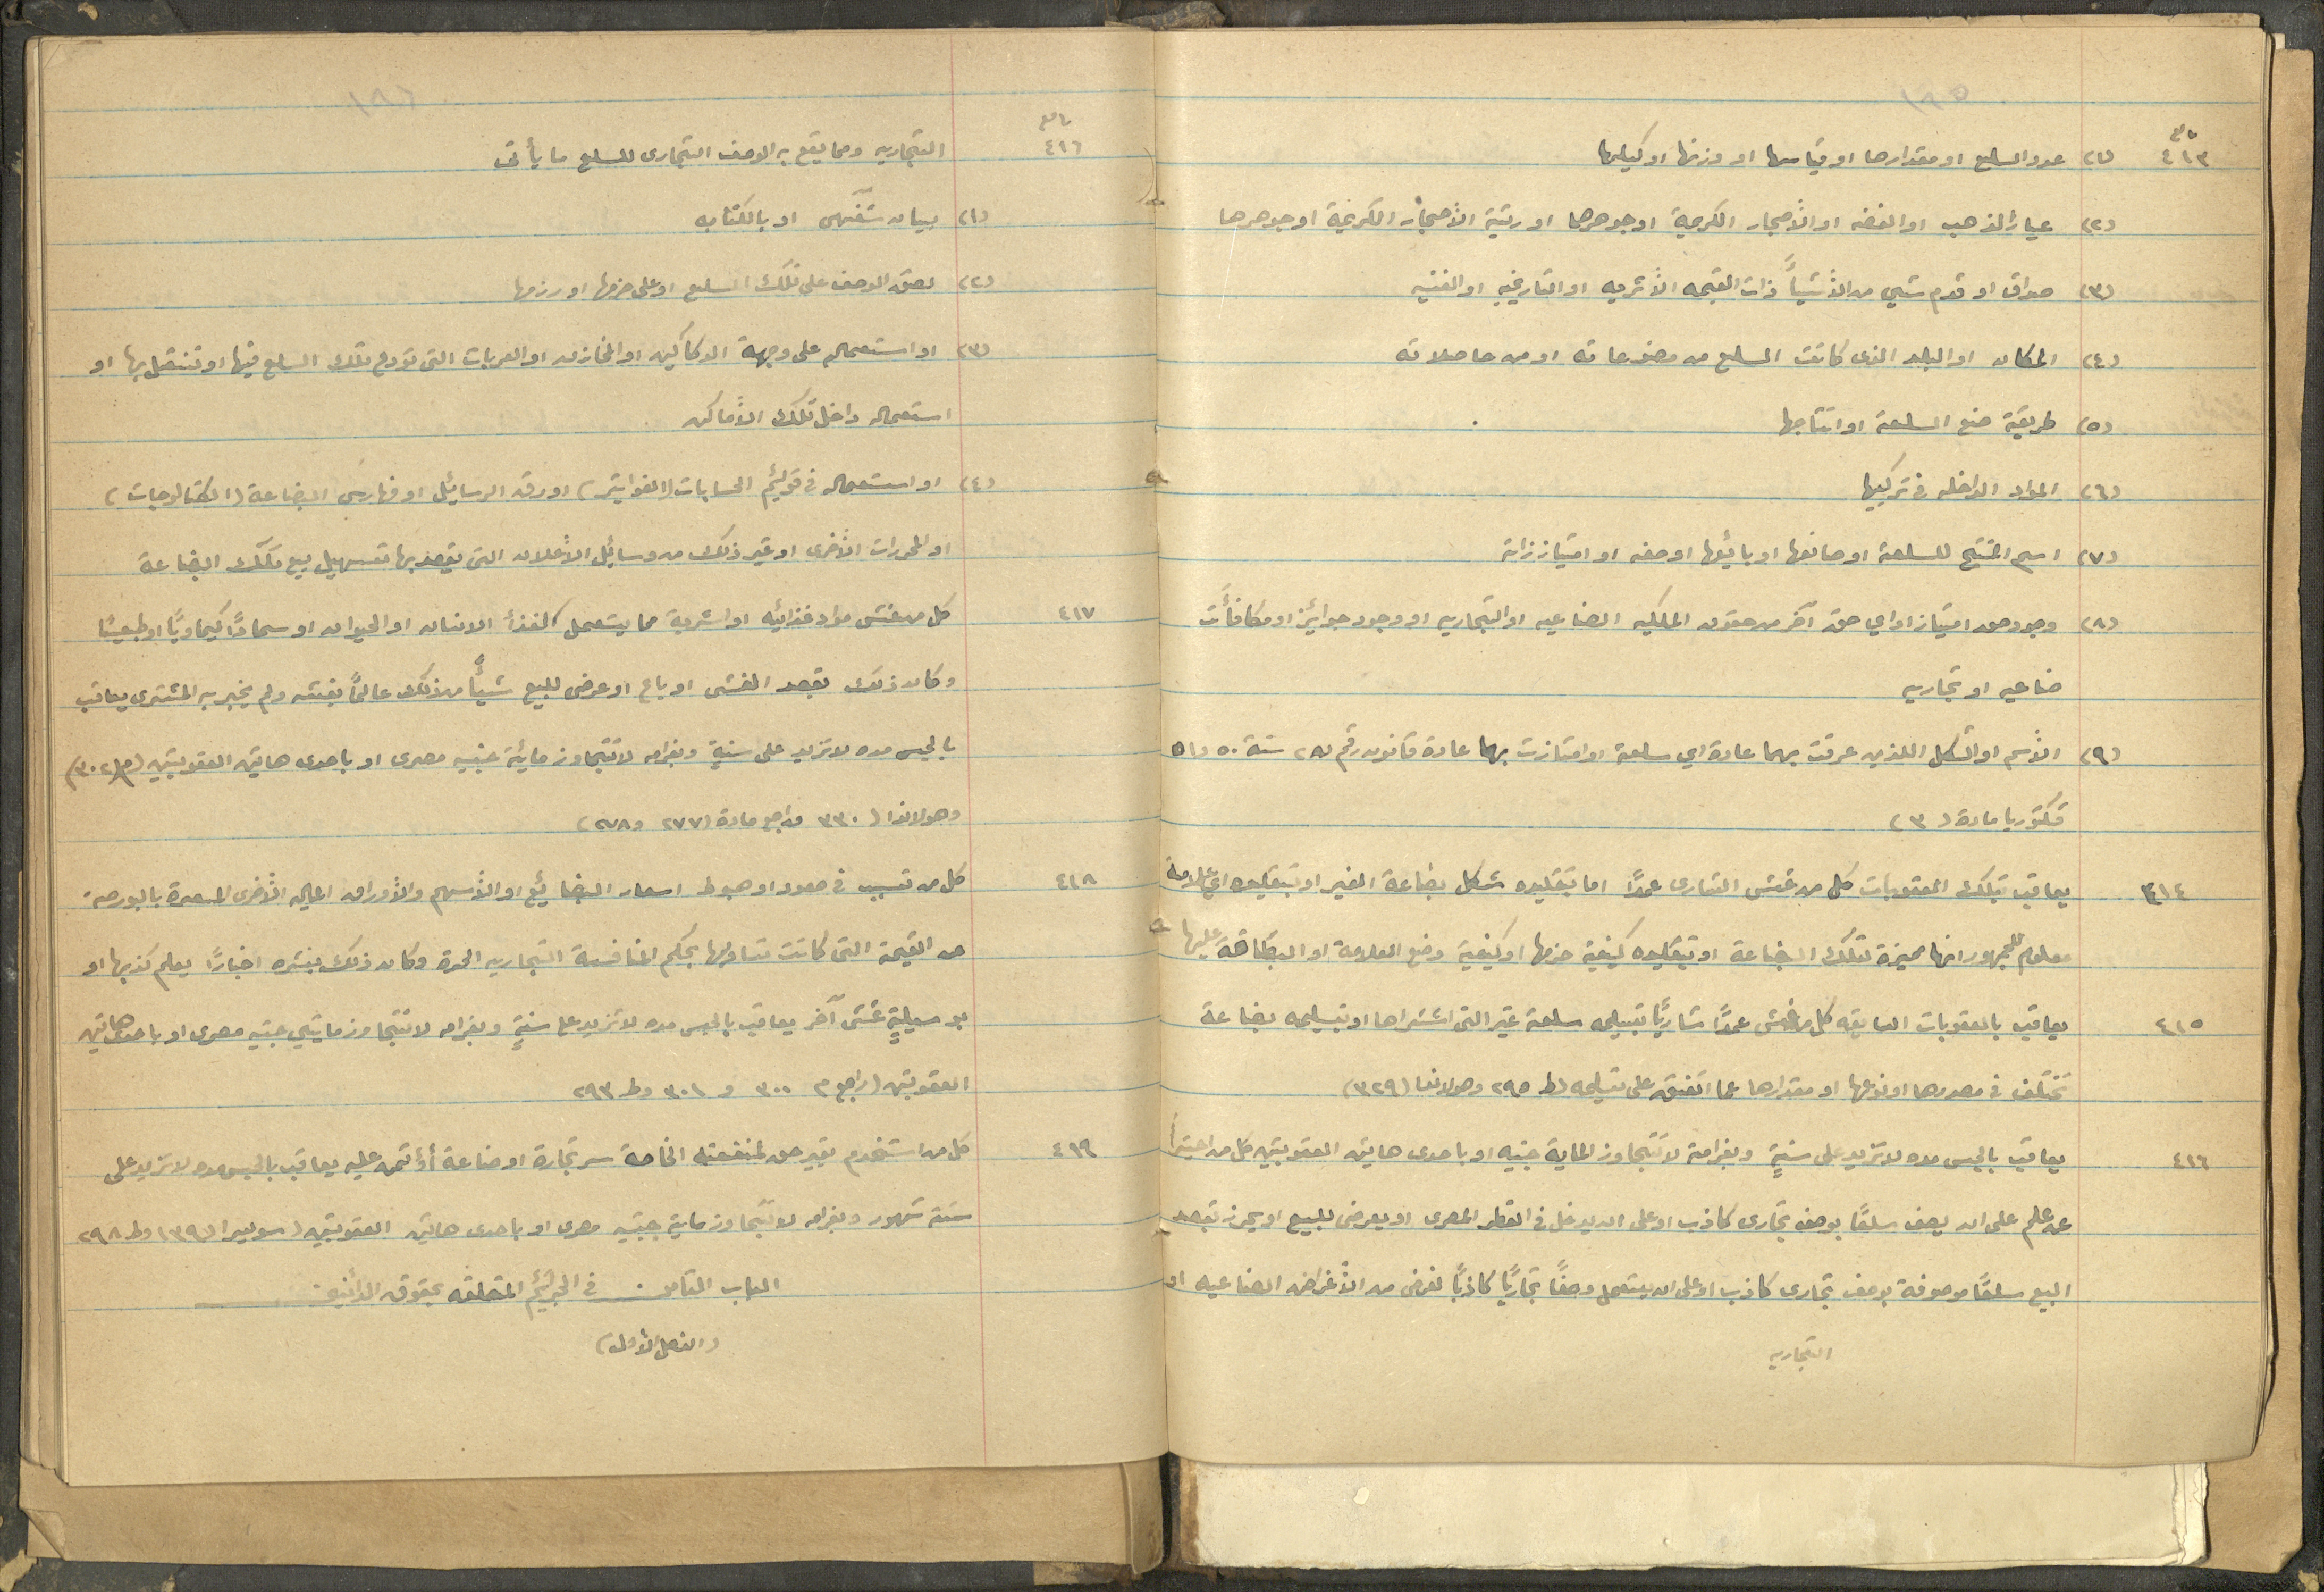 ١٩٥
٤١٣ (١) عدد السلع او مقدارها او قياسها او وزنها او كيلها
(٢) عيار الذهب او الفضه او الأحجار الكريمة او جوهرها او رتبة الأحجار الكريمة او جوهرها
(٣) صداق او قدم شيء من الأشياء ذات القيمه الأثريه او التاريخيه او الفنيه
(٤) المكان او البلد الذى كانت السلع من مصنوعاته او من حاصلاته
(٥) طريقة صنع السلعة او انتاجها
(٦) المواد الداخله فى تركيبها
(٧) اسم المنتج للسلعة او صانعها او بائعها او صفه او امتياز ذاته
(٨) وجود حق امتياز او اي حق آخر من حقوق الملكيه الصناعيه او التجاريه او وجود جوائز او مكافأت
صناعيه او تجاريه
(٩) الأسم او الشكل اللذين عرفت بهما عادة اي سلعة او امتازت بهما عادة قانون رقم ٢٨ سنة ٥٠ و٥١
فكتوريا مادة (٣)
٤١٤ يعاقب بتلك العقوبات كل من غش الشارى عمدًا اما بتقليده شكل بضاعة الغير او بتقليده اي علامة
معلوم للجمهور انها مميزة لتلك البضاعة او بتقليده كيفية حزمها او كيفية وضع العلامة او البطاقة عليها
٤١٥ يعاقب بالعقوبات السابقه كل من غش عمدًا شاريًا بتسليمه سلعة غير التى اشتراها او بتسليمه بضاعة
تختلف فى مصدرها او نوعها او مقدارها عما اتفق على تسليمه (ط ٢٩٥ وهولاندا (٣٢٩)
٤١٦ يعاقب بالحبس مده لا تزيد على سنةٍ وبغرامة لا تتجاوز الماية جنيه او باحدى هاتين العقوبتين كل من اجترأ
عن علم على ان يصف سلعًا بوصف تجارى كاذب او على ان يدخل فى القطر المصرى او يعرض للبيع او يحرز بقصد
البيع سلعًا موصوفة بوصف تجارى كاذب او على ان يستعمل وصفًا تجاريًا كاذبًا لغرض من الأغراض الصناعيه او
التجاريه
١٩٦
٤١٦ التجاريه ومما يقع به الوصف التجارى للسلع ما يأتى
(١) بيان شفهى او بالكتابه
(٢) لصق الوصف على تلك السلع او على حزمها او رزمها
(٣) او استعماله على وجهة الدكاكين او المخازن او العربات التى تودع تلك السلع فيها او تنتقل بها او
استعماله داخل تلك الأماكن
(٤) او استعماله فى قوائم الحسابات (الفواتير) او ورق الرسائل او فهارس البضاعة (الكتالوجات)
او المحررات الأخرى او غير ذلك من وسائل الأعلان التى يقصد بها تسهيل بيع تلك البضاعة
٤١٧ كل من غش مواد غذائيه او اشربة مما يستعمل كالغذأ الانسان او الحيوان او سمادًا كيماويًا او طبيعيًا
وكان ذلك بقصد الغش او باع او عرض للبيع شيئًا من ذلك عالمًا بغشه ولم يخبر به المشترى يعاقب
بالحبس مده لا تزيد على سنةٍ وبغرامه لا تتجاوز مائة جنيه مصرى او باحدى هاتين العقوبتين (م ٣٠٢)
وهولاندا (٣٣٠ وراجع مادة (٢٧٧ و٢٧٨)
٤١٨ كل من تسبب فى صعود او هبوط اسعار البضائع او الأسهم والأوراق الماليه الأخرى المسعرة بالبورصة
عن القيمة التى كانت تساويها بحكم المنافسة التجاريه الحرة وكان ذلك بنشره اخبارًا يعلم كذبها او
بوسيلةٍ غش آخر يعاقب بالحبس مده لا تزيد على سنةٍ وبغرامه لا تتجاوز مايتي جنيه مصرى او باحدى هاتين
العقوبتين (راجع م ٣٠٠ و ٣٠١ وط ٢٩٣
٤١٩ كل من استخدم بغير حق لمنفعته الخاصة سر تجارة او صناعة أؤتمن عليه يعاقب بالحبس مده لا تزيد على
ستة شهور وبغرامه لا تتجاوز ماية جنيه مصرى او باحدى هاتين العقوبتين (سويسرا (١٣٩) وط ٢٩٨
الباب الثامن فى الجرائم المتعلقه بحقوق الدائنين
(الفصل الأول)